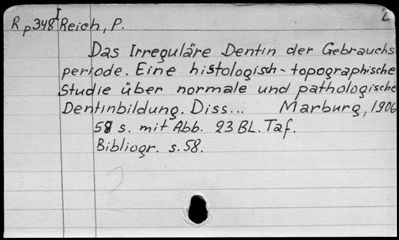 R p348I Reich, P. 2
Das Irreguläre Dentin der Gebrauchs
periode. Eine histologisch-topographische
Studie über normale und pathologische
Dentinbildung. Diss... Marburg, 1906
58 s. mit Abb. 23 BL. Taf.
Bibliogr. s. 58.